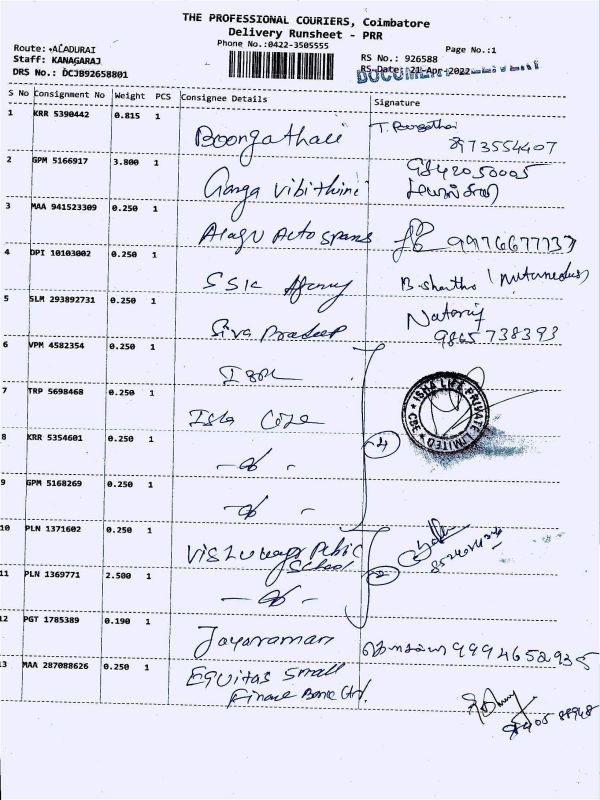 THE PROFESSIONAL COURIERS, Coimbatore
Delivery Runsheet - PRR
Phone No.:0422-3505555
Page No.:1
Route: ALADURAI
Staff: KANAGARAJ
DRS No.: DCJB92658801
RS No.: 926588
RS Date: 21-Apr-2022
S No Consignment No Weight PCS Consignee Details Signature
1 KRR 5390442 0.815 1
8973554407
2 GPM 5166917 3.800 1 Ganga Vibithini
9842050005
3 MAA 941523309 0.250 1 Alagu Auto spares 9976677737
4 DPI 10103002 0.250 1 SSK Agency B. Shantha
5 SLM 293892731 0.250 1 Siva Pradeep Nataraj
9865738393
6 VPM 4582354 0.250 1
7 TRP 5698468 0.250 1 Isha
4
ISHA LIFE PRIVATE LIMITED
CBE
8 KRR 5354601 0.250 1
9 GPM 5168269 0.250 1
10 PLN 1371602 0.250 1 Public
School
11 PLN 1369771 2.500 1
2
12 PGT 1785389 0.190 1 Jayaraman 9994652935
13 MAA 287088626 0.250 1 Equitas Small
Finance Bank Ltd.